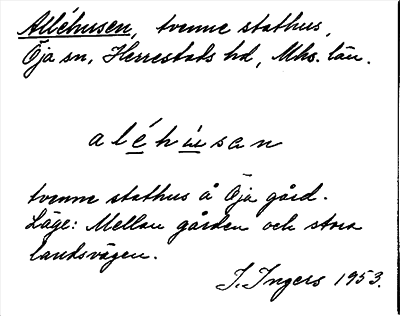 Alléhusen, tvenne stathus,
Öja sn, Herrestads hd, Mhs. län.
aléhùsan
tvenne stathus å Öja gård.
Läge: Mellan gården och stora
landsvägen.
I. Ingers 1953.